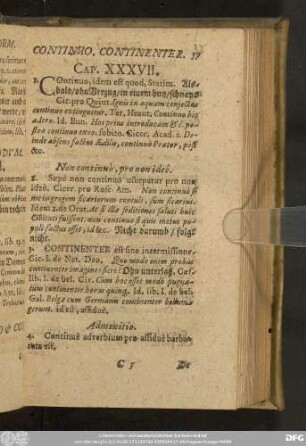 CONTINUO. CONTINENTER.
CAP. XXXVII.
1. COntinuo, idem est quod, Statim. Als-
bald/ohn Verzug/in einem huy/schnapß
Cic. pro Quint. Ignis in aquam conjectus
continuo extinguitur. Ter. Heaut. Continuo hic
adero. Id. Eun. post
continuo exeo. subito. Cicer. Acad. 1. De-
inde absens factus Ædilis, continuò Prætor, post
&c.
Non continuò, pro non ideò.
2. Sepè non continuò usurpatur pro non
ideò. Cicer. pro Rosc. Am. Non continuò si
me in gregem sicariorum contuli, sum sicarius.
Idem 2. de Orat. si illæ seditiones saluti huic
Civitati fuissent, non continuò si quis motus popu-
li factus esset, id &c. Nicht darumb / folgt
nicht.
3. CONTINENTER est sine intermissione.
Cic. l. de Nat. Deo. Quo modo enim probas
continenter imagines ferri? Ohn unterlaß. Cæs.
lib. 1. de bel. Civ. Cum hoc esset modo pugna-
tum continenter horis quinq. Id. lib. 1. de bel.
Gal. Belgæ cum Germanis continenter bellum
gerunt. id est, assiduè.
Admonitio.
4. Continuè adverbium pro assiduè barba-
rum est.
C 5
De